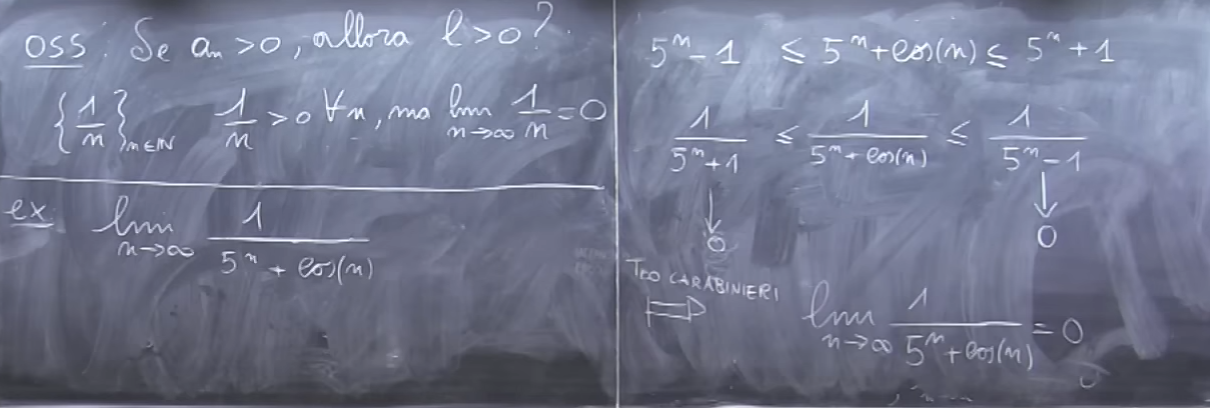 OSS: Se aₙ > 0, allora l > 0?
{1/n}ₙ∈ℕ 1/n > 0 ∀n, ma lim n→∞ 1/n = 0
ex. lim n→∞ 1/(5ⁿ + cos(n))
5ⁿ - 1 ≤ 5ⁿ + cos(n) ≤ 5ⁿ + 1
1/(5ⁿ + 1) ≤ 1/(5ⁿ + cos(n)) ≤ 1/(5ⁿ - 1)
↓ ↓
0 0
TEO CARABINIERI
⟹ lim n→∞ 1/(5ⁿ + cos(n)) = 0